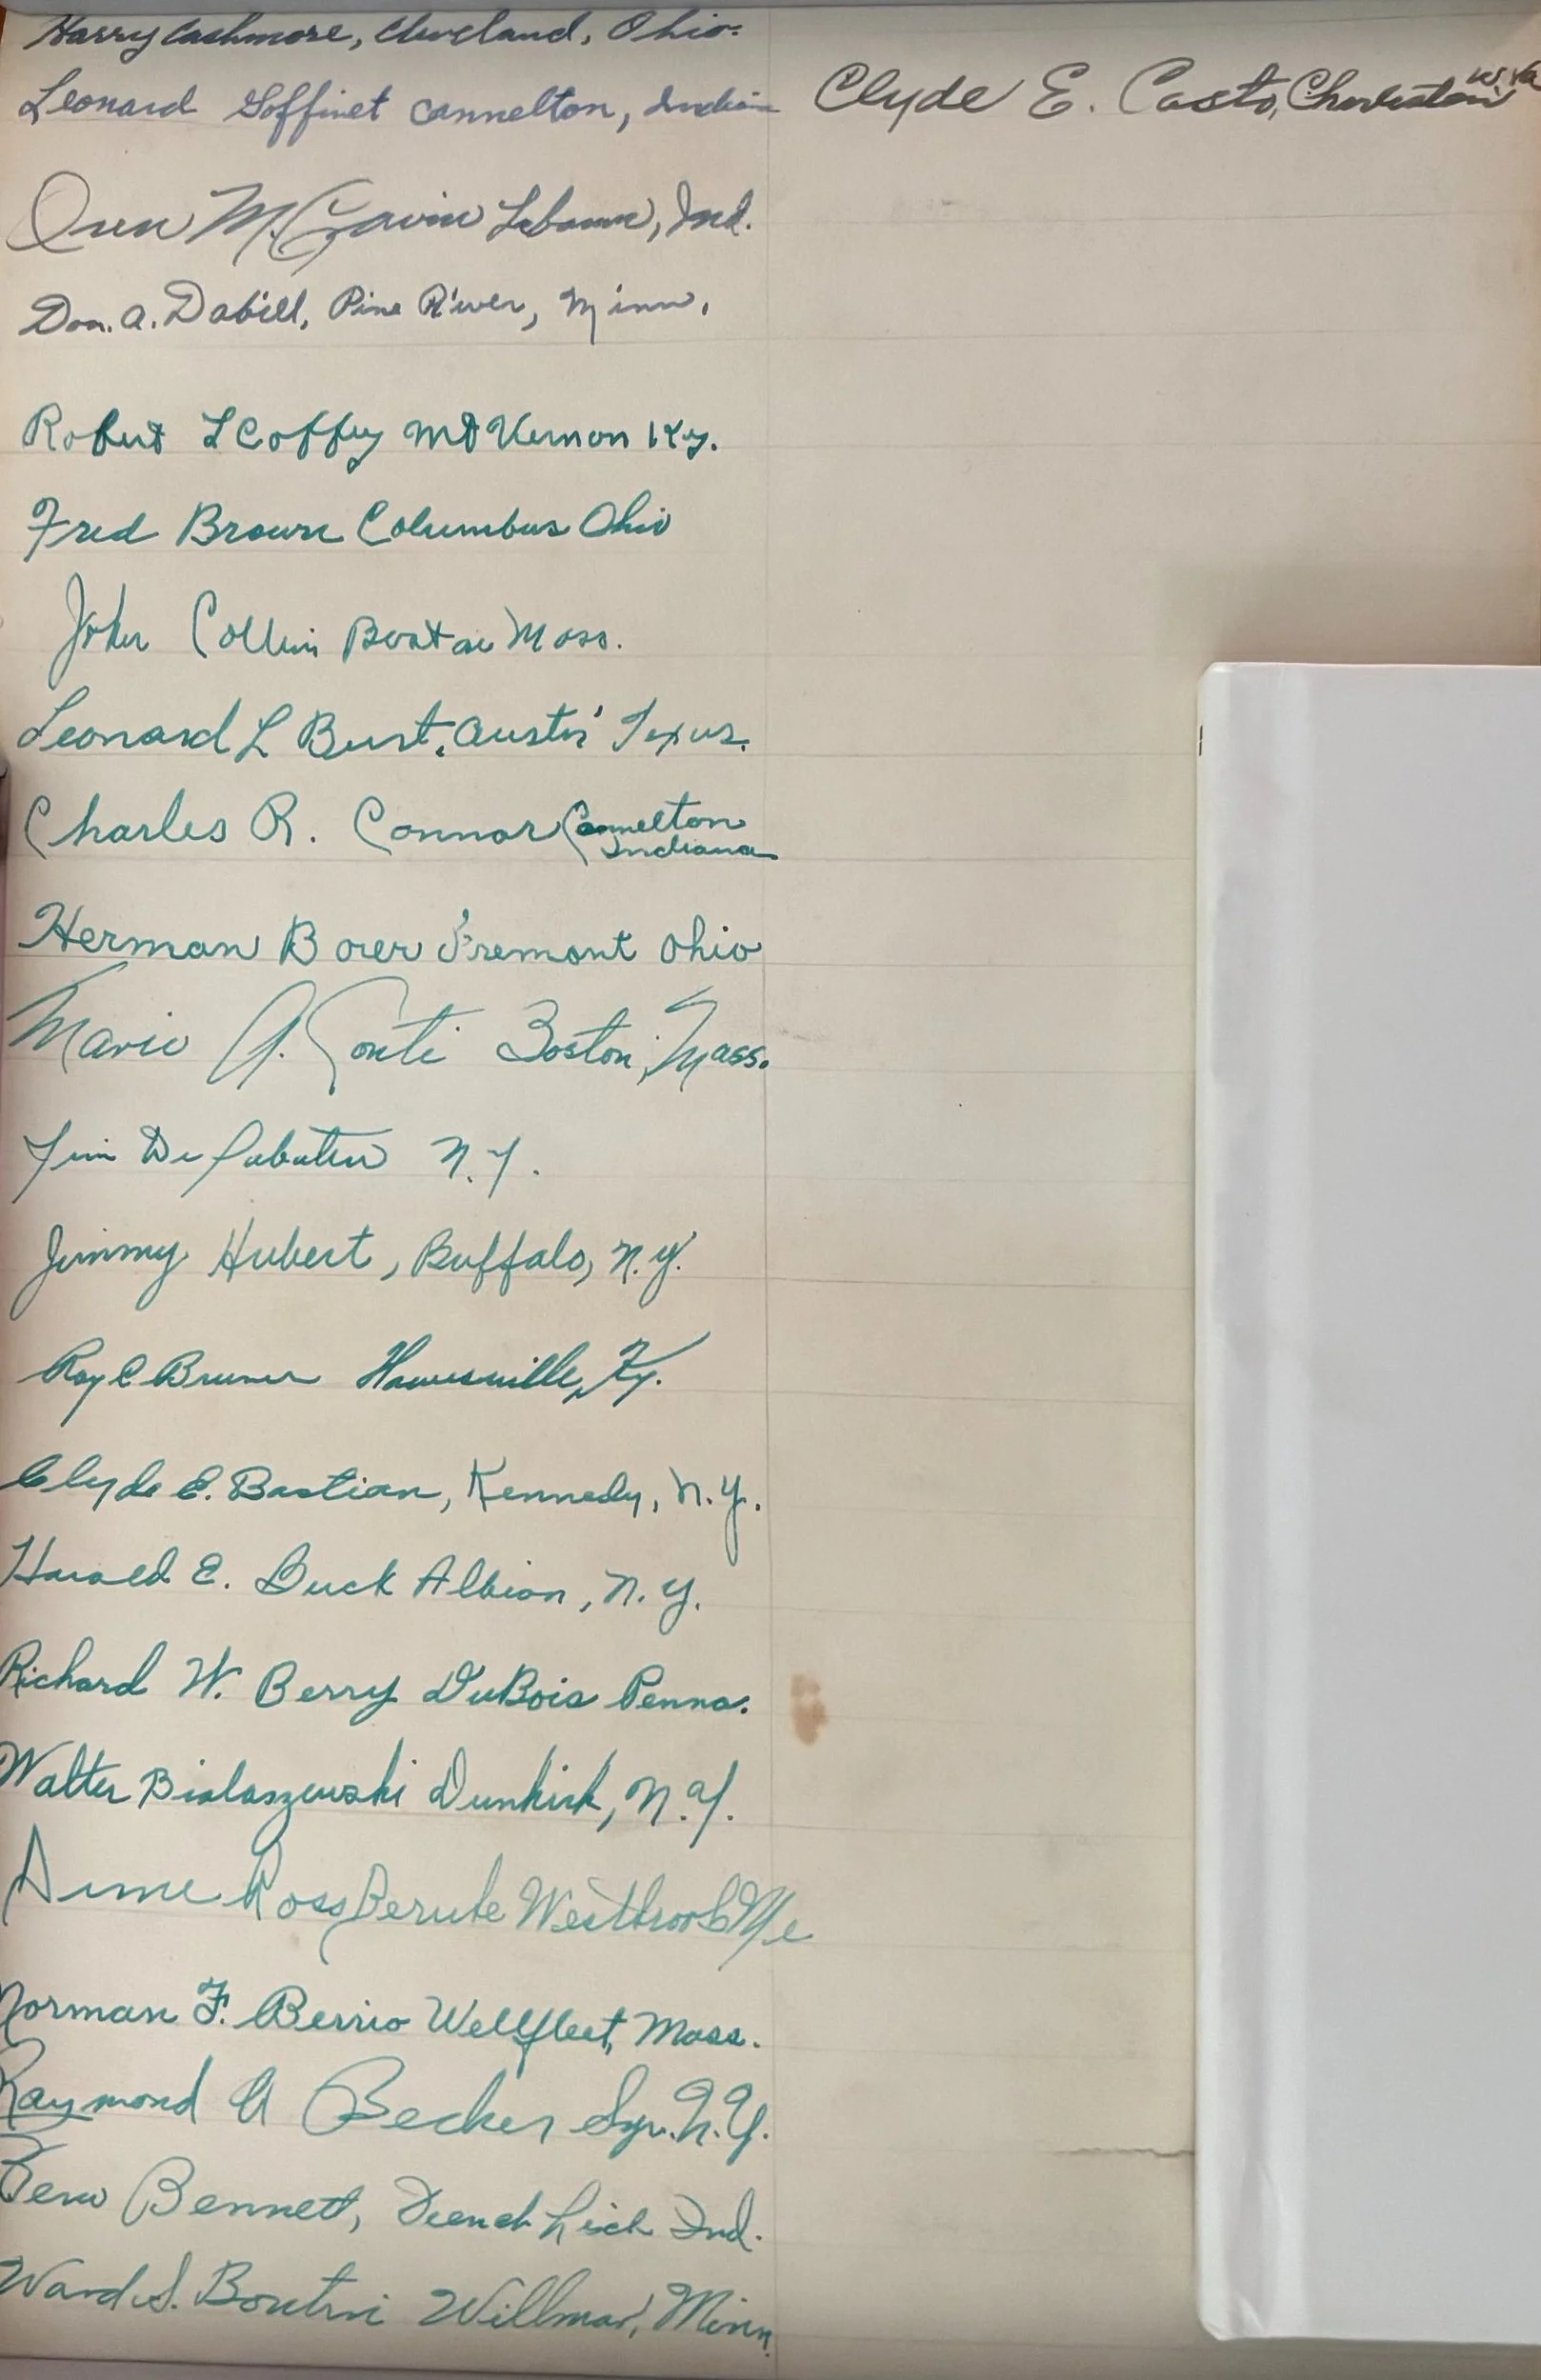 Harry Cashmore, Cleveland, Ohio.
Leonard Goffinet Cannelton, Indian
Clyde E. Casto, Charleston W. Va
Oren M. Gavin Lebanon, Ind.
Don. A. Dabill, Pine River, Minn.
Robert L Coffey Mt Vernon Ky.
Fred Brown Columbus Ohio
John Collins Boston Mass.
Leonard L Burt, Austin Texas.
Charles R. Connor Cannelton
Indiana
Herman Borer Fremont Ohio
Mario A. Conti Boston, Mass.
Jim De N.Y.
Jimmy Hubert, Buffalo, N.Y.
Roy C Bruner Hawesville, Ky.
Clyde E. Bastian, Kennedy, N.Y.
Harold E. Buck Albion, N.Y.
Richard W. Berry DuBois Penna.
Walter Bialaszewski Dunkirk, N.Y.
Ross Berube Westbrook Me
Norman F. Berrio Wellfleet, Mass.
Raymond A Becker Syr. N.Y.
Bennett, French Lick Ind.
Ward S. Willmar, Minn.